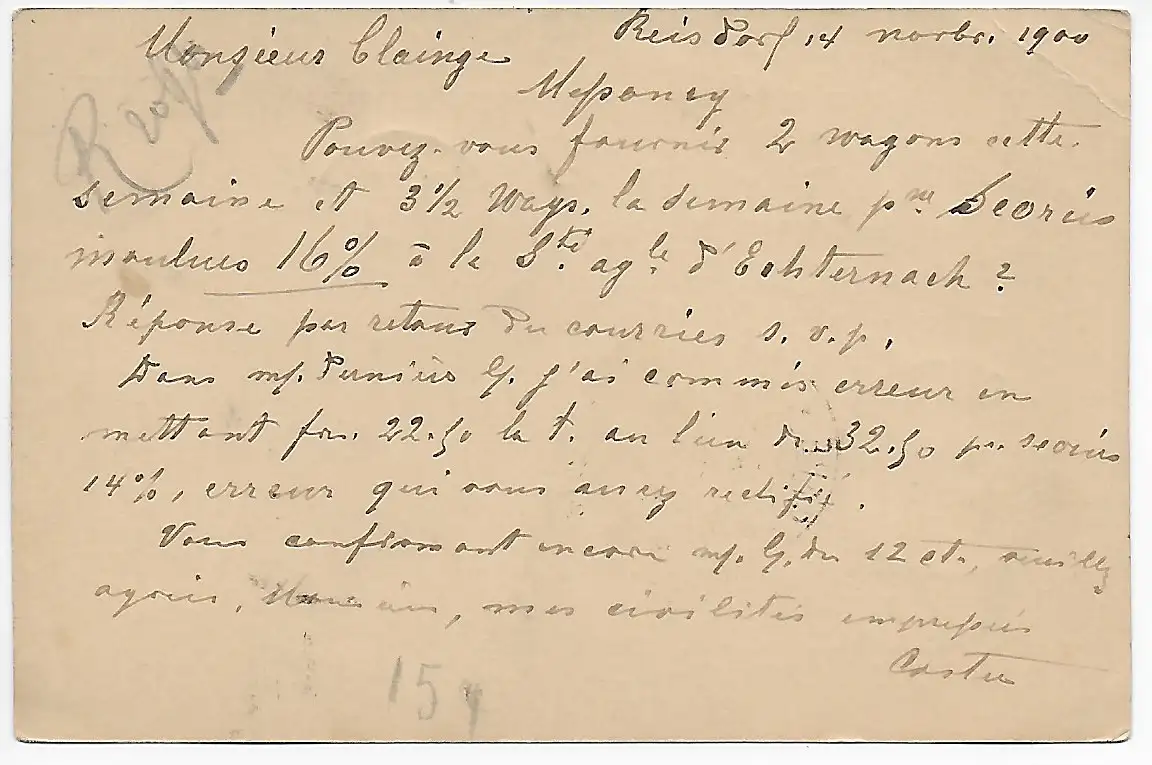 Reisdorf 14 novbr. 1900
Monsieur Clainge
Messancy
R 20/11
Pouvez-vous fournir 2 wagons cette
semaine et 3½ wags. la semaine pne Scories
moulues 16% à la Sté agle d'Echternach ?
Réponse par retour du courrier s. v. p.
Dans m/. dernière l/. j'ai commis erreur en
mettant frs. 22.50 la t. au lieu de 32.50 pr. scories
14%, erreur que vous aurez rectifié.
Vous confirmant encore m/. l/. du 12 ct., veuillez
agréer, Monsieur, mes civilités empressées
154